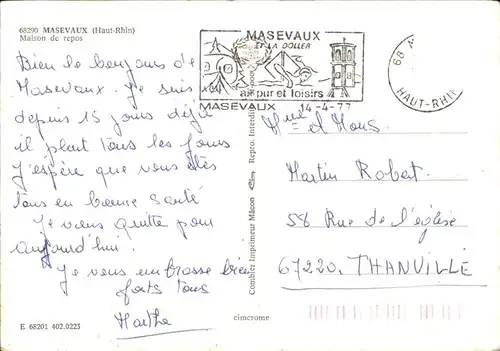 68290 MASEVAUX (Haut-Rhin)
Maison de repos
Bien le bonjours de
Masevaux. Je suis
depuis 15 jours déjà
il pleut tous les jours
J'espère que vous êtes
tous en bonne santé
Je vous quitte pour
aujourd'hui.
Je vous embrasse bien
forts tous
Marthe
E 68201 402.0223
MASEVAUX
ET LA DOLLER
air pur et loisirs
MASEVAUX 14-4-77
68
HAUT-RHIN
Combier Imprimeur Mâcon
Repro. Interdite
cimcrome
Mme et Mons.
Martin Robert
58 Rue de l'église
67220. THANVILLÉ